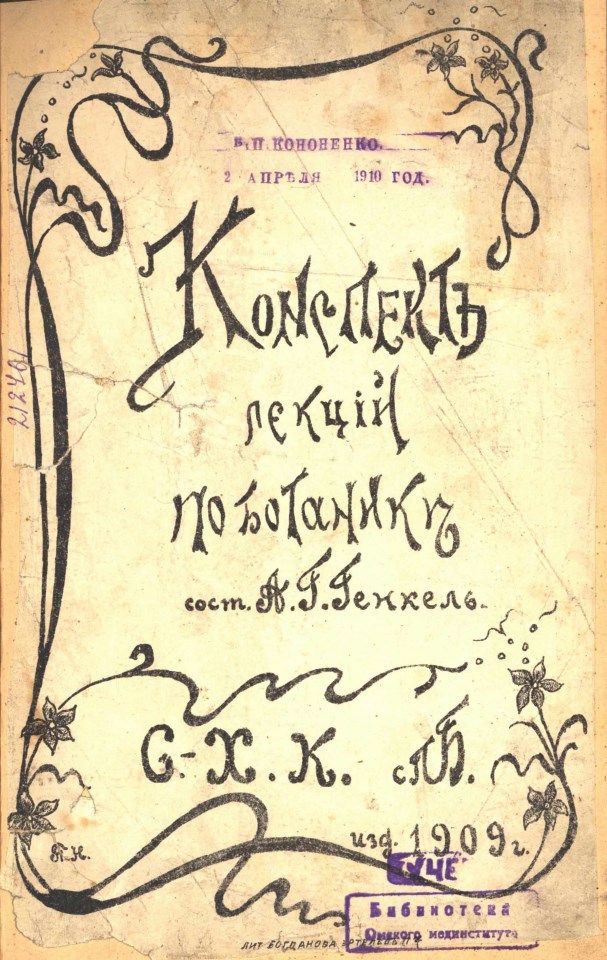 В.П. КОНОНЕНКО.
2 АПРѢЛЯ 1910 ГОД.
Конспектъ
лекцій
по ботаникѣ
сост. А.Г. Генкель.
С.-Х. К. сПБ.
изд. 1909 г.
212461
П.Н.
УЧЕ
Библиотека
Омского мединститута
ЛИТ БОГДАНОВА ЭРТЕЛЕВЪ П 7